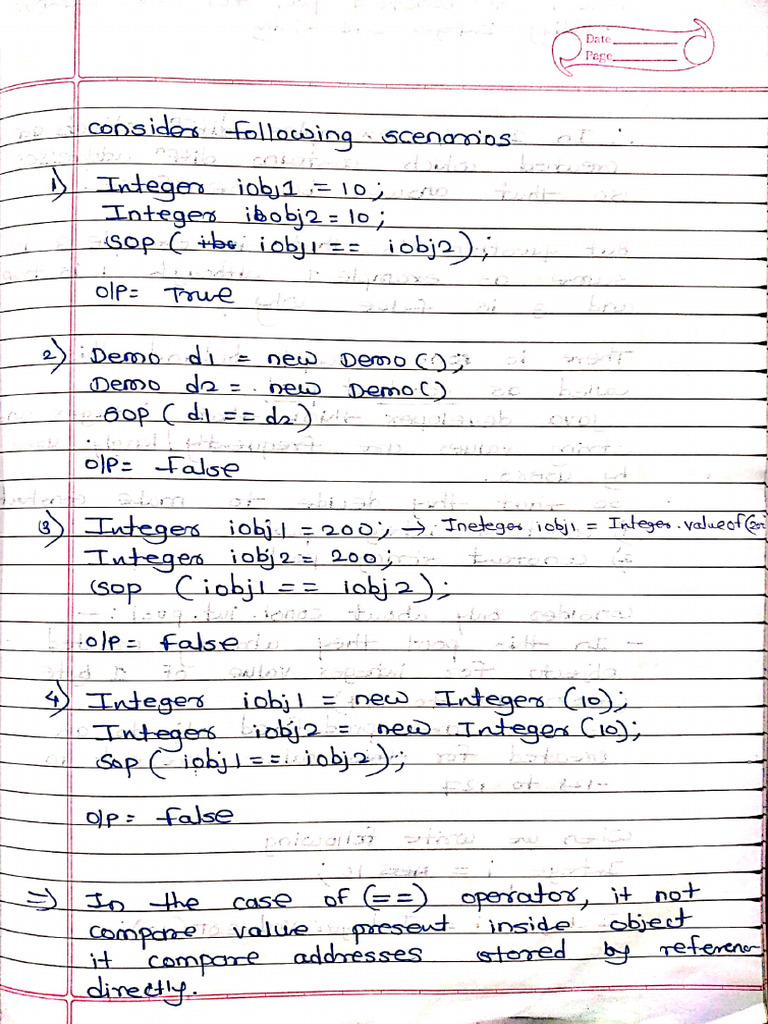 Date
Page
consider following scenarios
1) Integer iobj1 = 10;
Integer iobj2 = 10;
sop ( iobj1 == iobj2);
O/P = True
2) Demo d1 = new Demo();
Demo d2 = new Demo()
sop ( d1 == d2)
O/P = false
(3) Integer iobj1 = 200; → Ineteger iobj1 = Integer.valueof(200
Integer iobj2 = 200;
sop (iobj1 == iobj2);
O/P = false
4) Integer iobj1 = new Integer (10);
Integer iobj2 = new Integer (10);
sop ( iobj1 == iobj2);
O/P = false
⇒ In the case of (==) operator, it not
compare value present inside object
it compare addresses stored by reference
directly.